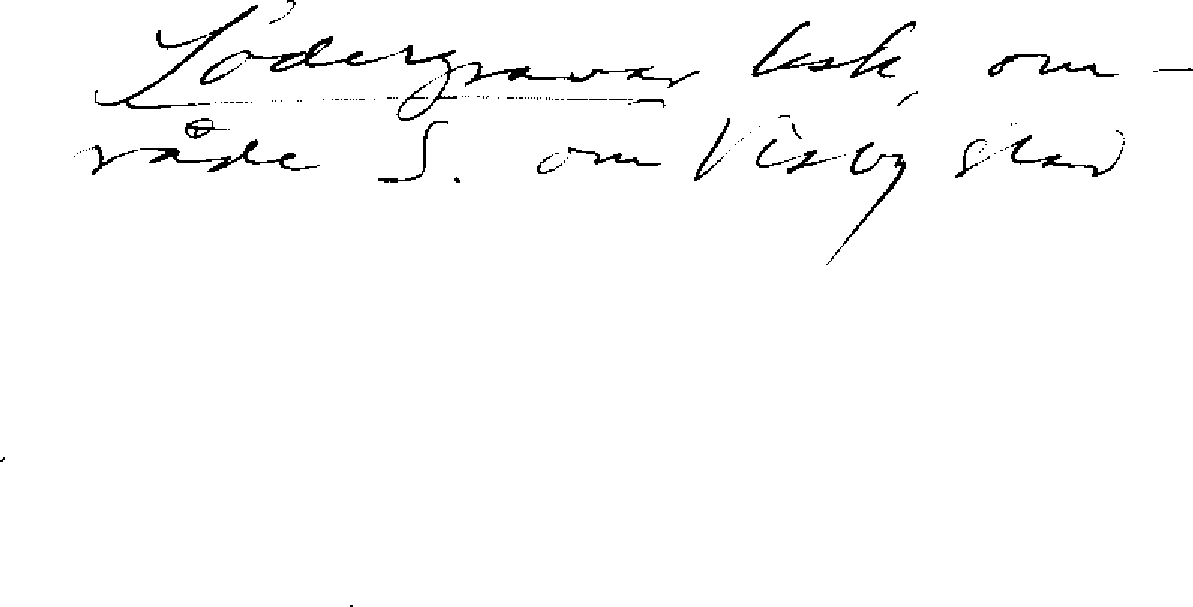 Södergravar bsk, om-
råde S. om Visby stad